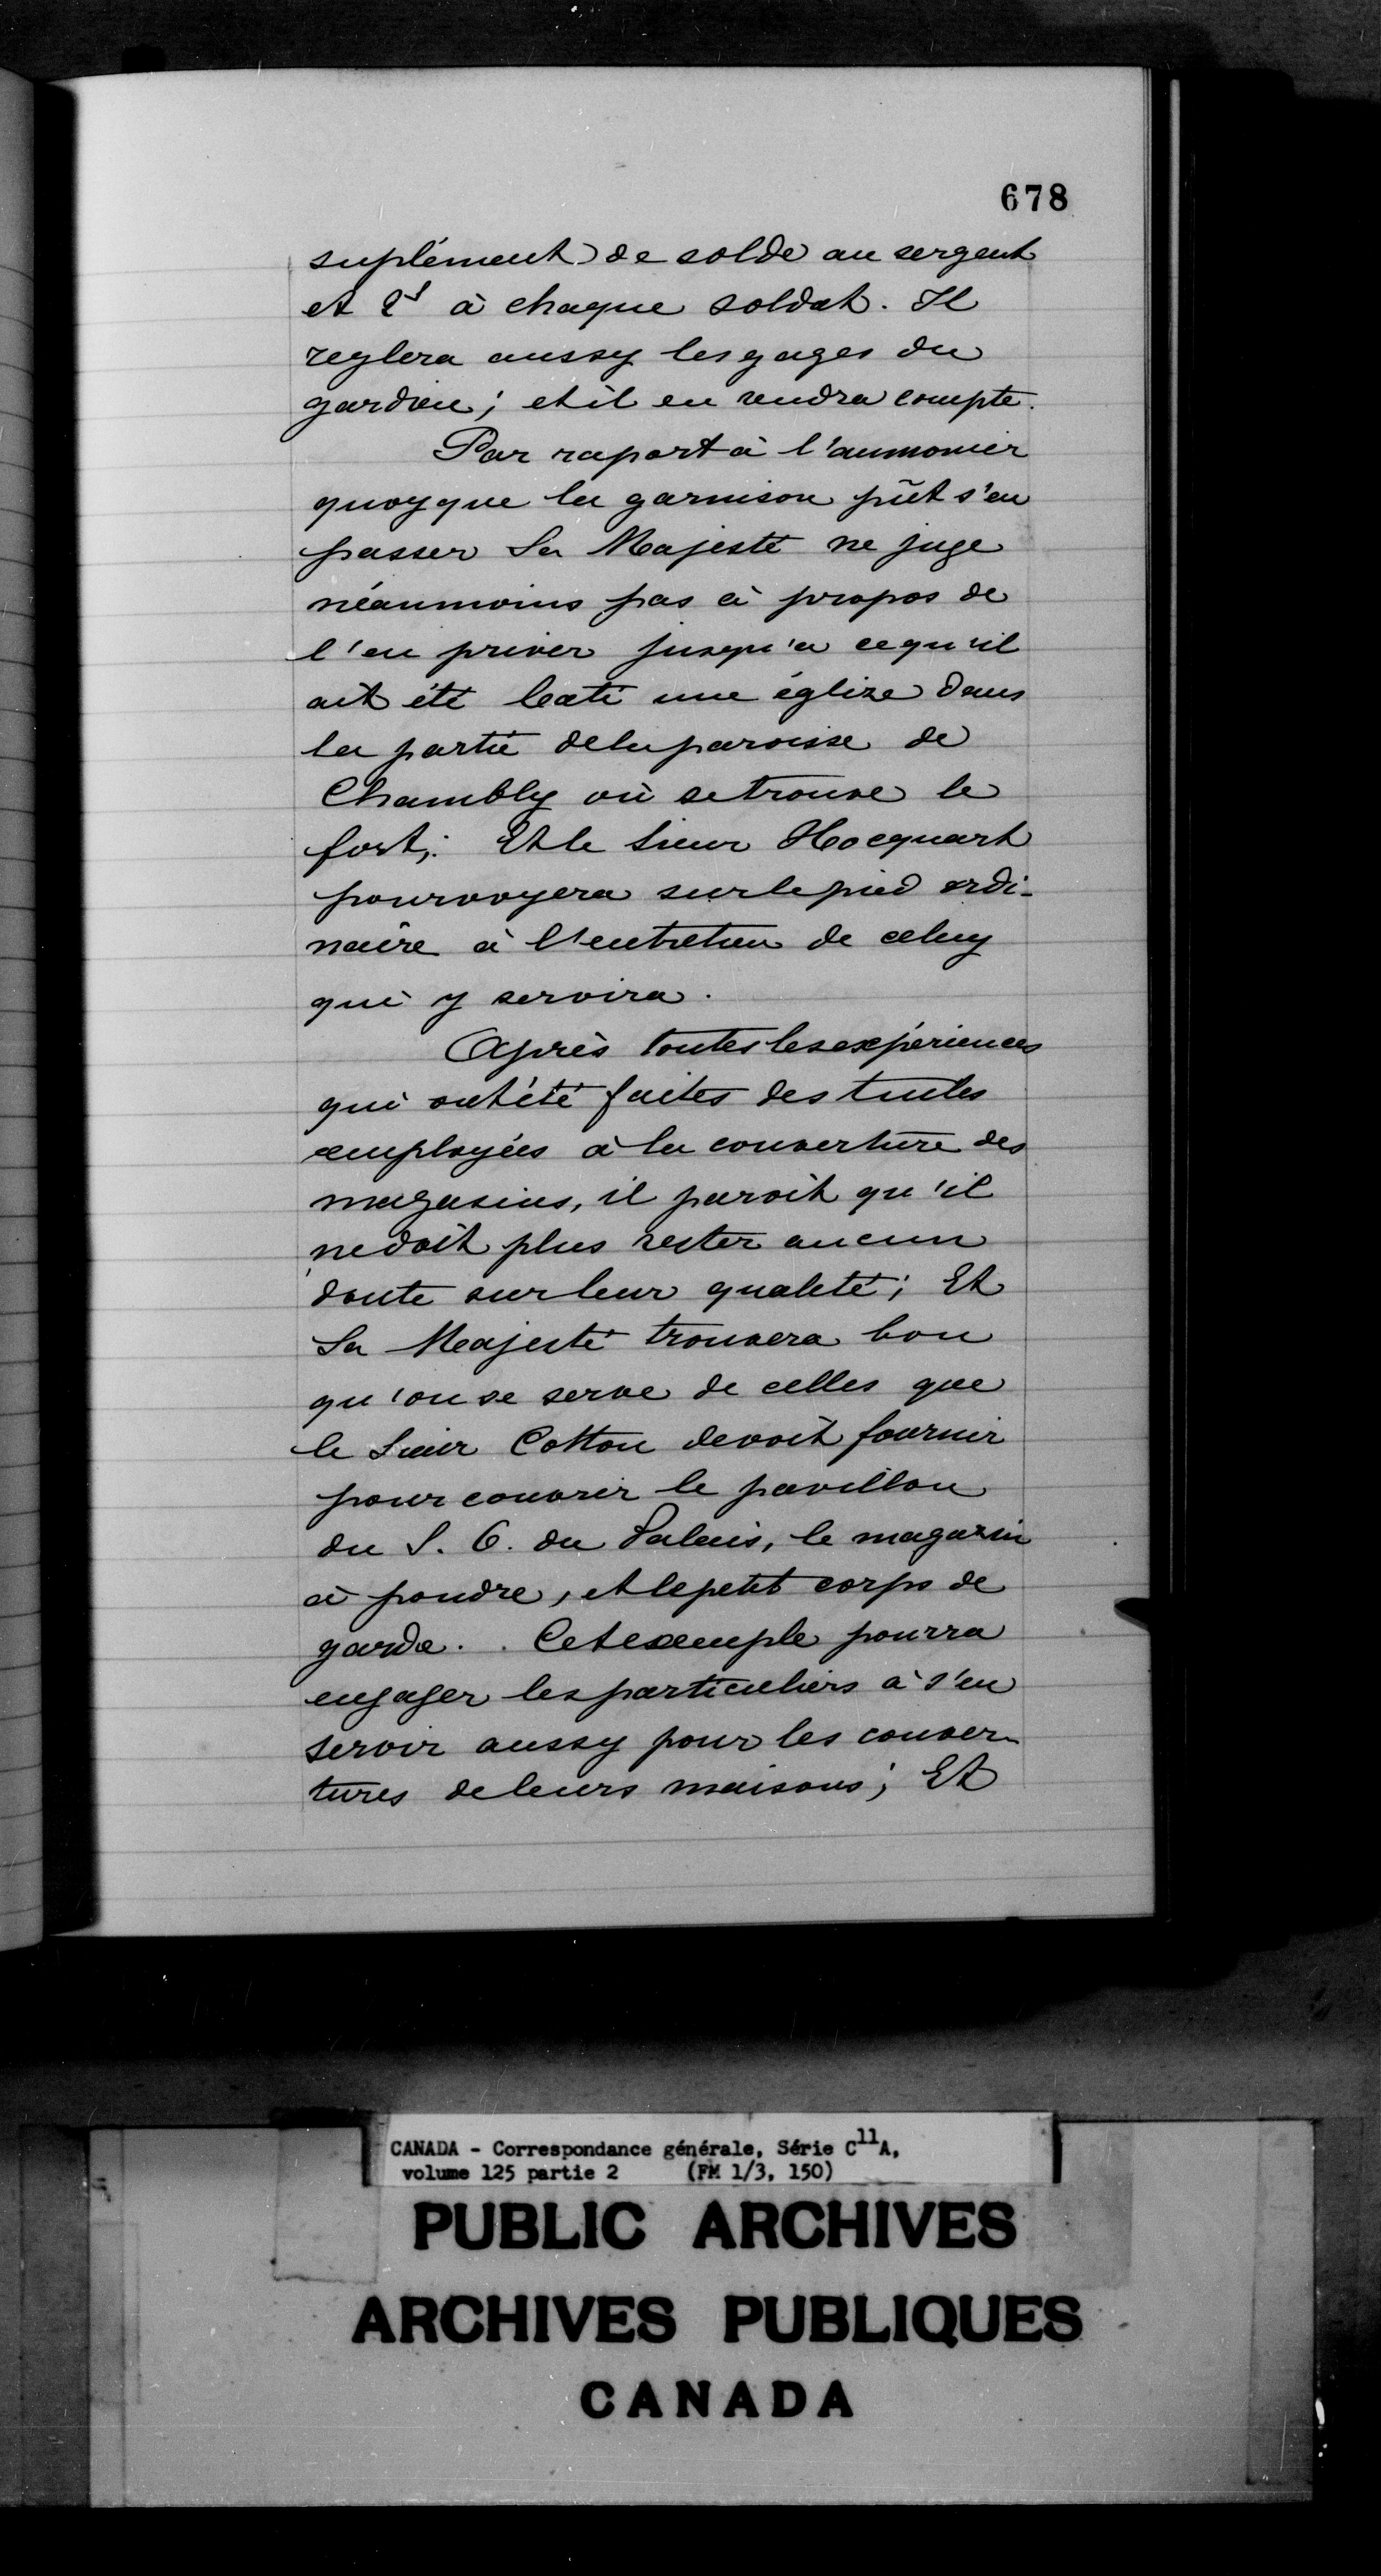 678
suplément de solde au sergent
et 2s à chaque soldat. Il
reglera aussy les gages du
gardien; et il en rendra compte.
Par raport à l'aumonier
quoy que la garnison pût s'en
passer Sa Majesté ne juge
néanmoins pas à propos de
l'en priver jusqu'a ce qu'il
ait été bati une églize dans
la partie de la paroisse de
Chambly où se trouve le
fort; Et le Sieur Hocquart
pourvoyera sur le pied ordi-
naire à l'entretien de celuy
qui y servira.
Après toutes les expériences
qui ont été faites des tuiles
employées à la couverture des
magasins, il paroit qu'il
ne doit plus rester aucun
doute sur leur qualité; Et
Sa Majesté trouvera bon
qu'on se serve de celles que
le Sieur Cotton devoit fournir
pour couvrir le pavillon
du S. O. du Palais, le magazin
à poudre, et le petit corps de
garde. Cet exemple pourra
engager les particuliers à s'en
servir aussy pour les couver-
tures de leurs maisons; Et
CANADA - Correspondance générale, Série C11A,
volume 125 partie 2 (FM 1/3, 150)
PUBLIC ARCHIVES
ARCHIVES PUBLIQUES
CANADA